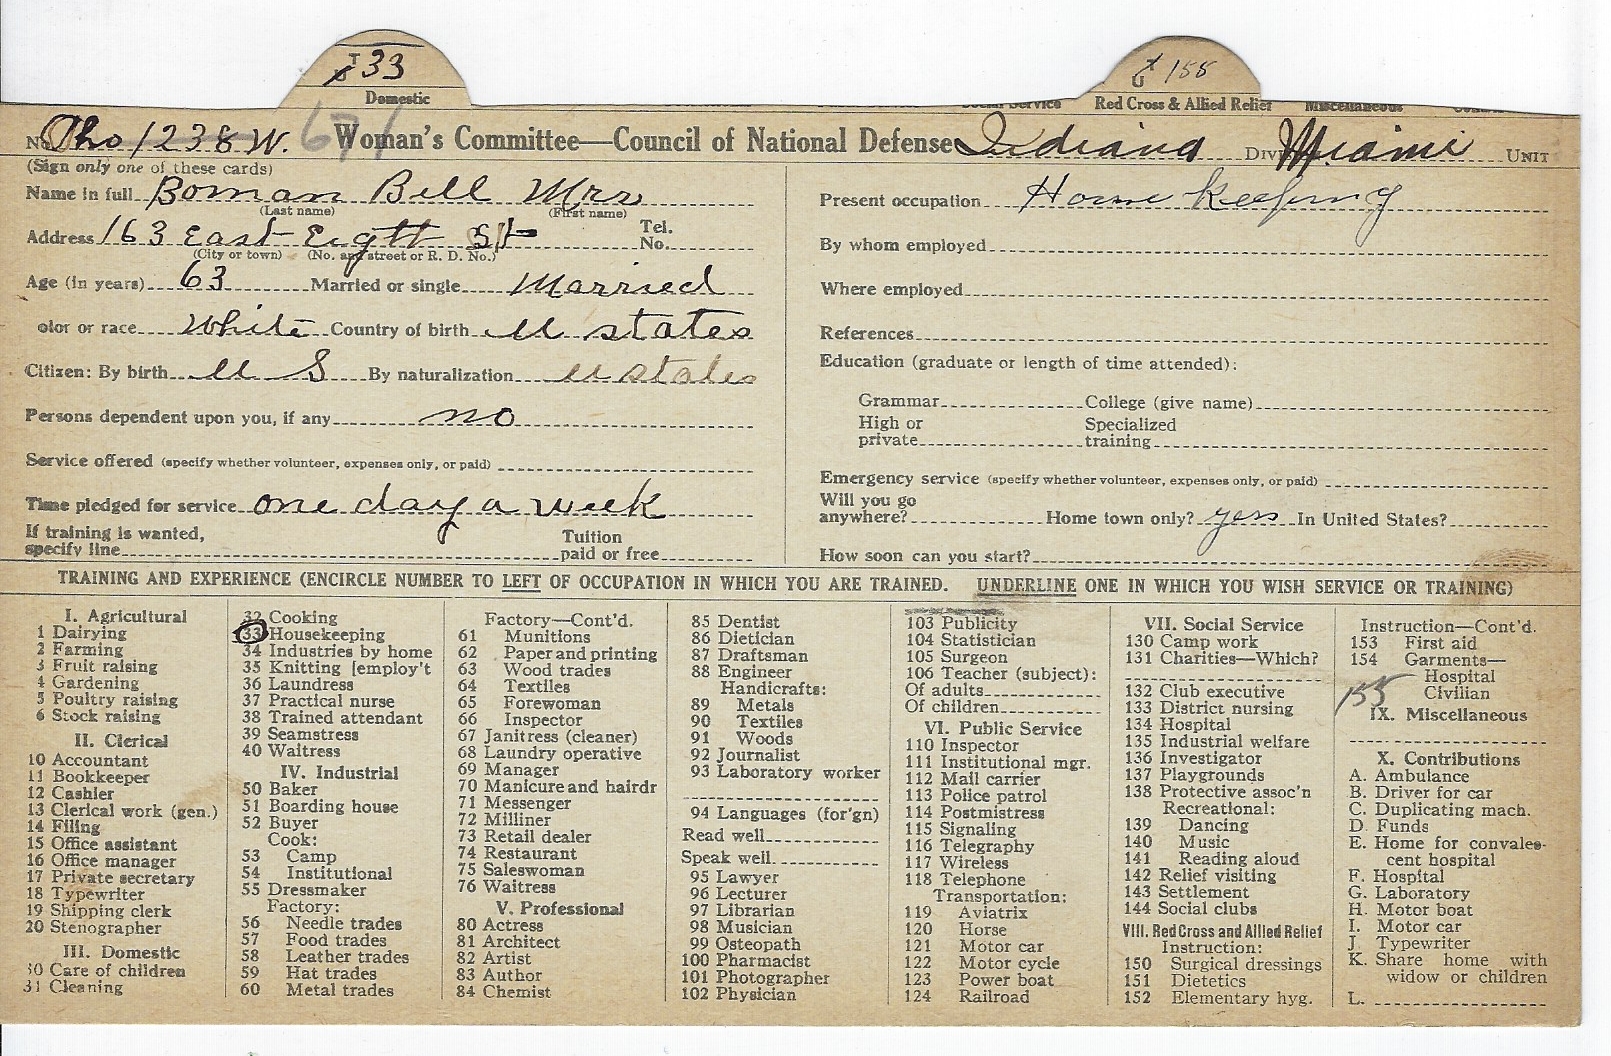 T 33
U 155
Domestic
Social Service Red Cross & Allied Relief Miscellaneous
No. Pho 1238 W. 671 Woman's Committee—Council of National Defense Indiana Div. Miami UNIT
(Sign only one of these cards)
Name in full Boman Bell Mrs
(Last name) (First name)
Address 163 East Eigtt St Tel. No.
(City or town) (No. and street or R. D. No.)
Age (in years) 63 Married or single Married
olor or race White Country of birth U states
Citizen: By birth U S By naturalization U states
Persons dependent upon you, if any no
Service offered (specify whether volunteer, expenses only, or paid)
Time pledged for service one day a week
If training is wanted, specify line Tuition paid or free
Present occupation House Keeping
By whom employed
Where employed
References
Education (graduate or length of time attended):
Grammar College (give name)
High or private Specialized training
Emergency service (specify whether volunteer, expenses only, or paid)
Will you go anywhere? Home town only? yes In United States?
How soon can you start?
TRAINING AND EXPERIENCE (ENCIRCLE NUMBER TO LEFT OF OCCUPATION IN WHICH YOU ARE TRAINED. UNDERLINE ONE IN WHICH YOU WISH SERVICE OR TRAINING)
I. Agricultural
1 Dairying
2 Farming
3 Fruit raising
4 Gardening
5 Poultry raising
6 Stock raising
II. Clerical
10 Accountant
11 Bookkeeper
12 Cashier
13 Clerical work (gen.)
14 Filing
15 Office assistant
16 Office manager
17 Private secretary
18 Typewriter
19 Shipping clerk
20 Stenographer
III. Domestic
30 Care of children
31 Cleaning
32 Cooking
33 Housekeeping
34 Industries by home
35 Knitting [employ't
36 Laundress
37 Practical nurse
38 Trained attendant
39 Seamstress
40 Waitress
IV. Industrial
50 Baker
51 Boarding house
52 Buyer
Cook:
53 Camp
54 Institutional
55 Dressmaker
Factory:
56 Needle trades
57 Food trades
58 Leather trades
59 Hat trades
60 Metal trades
Factory—Cont'd.
61 Munitions
62 Paper and printing
63 Wood trades
64 Textiles
65 Forewoman
66 Inspector
67 Janitress (cleaner)
68 Laundry operative
69 Manager
70 Manicure and hairdr
71 Messenger
72 Milliner
73 Retail dealer
74 Restaurant
75 Saleswoman
76 Waitress
V. Professional
80 Actress
81 Architect
82 Artist
83 Author
84 Chemist
85 Dentist
86 Dietician
87 Draftsman
88 Engineer
Handicrafts:
89 Metals
90 Textiles
91 Woods
92 Journalist
93 Laboratory worker
94 Languages (for'gn)
Read well
Speak well
95 Lawyer
96 Lecturer
97 Librarian
98 Musician
99 Osteopath
100 Pharmacist
101 Photographer
102 Physician
103 Publicity
104 Statistician
105 Surgeon
106 Teacher (subject):
Of adults
Of children
VI. Public Service
110 Inspector
111 Institutional mgr.
112 Mail carrier
113 Police patrol
114 Postmistress
115 Signaling
116 Telegraphy
117 Wireless
118 Telephone
Transportation:
119 Aviatrix
120 Horse
121 Motor car
122 Motor cycle
123 Power boat
124 Railroad
VII. Social Service
130 Camp work
131 Charities—Which?
132 Club executive
133 District nursing
134 Hospital
135 Industrial welfare
136 Investigator
137 Playgrounds
138 Protective assoc'n
Recreational:
139 Dancing
140 Music
141 Reading aloud
142 Relief visiting
143 Settlement
144 Social clubs
VIII. Red Cross and Allied Relief
Instruction:
150 Surgical dressings
151 Dietetics
152 Elementary hyg.
Instruction—Cont'd.
153 First aid
154 Garments—
Hospital
Civilian
155
IX. Miscellaneous
X. Contributions
A. Ambulance
B. Driver for car
C. Duplicating mach.
D. Funds
E. Home for convales-
cent hospital
F. Hospital
G. Laboratory
H. Motor boat
I. Motor car
J. Typewriter
K. Share home with
widow or children
L.